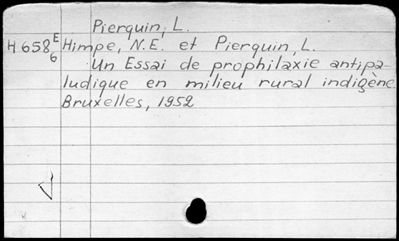 Pierquin, L.
H 658 E 6 Himpe, N.E. et Pierquin, L.
Un Essai de prophilaxie antipa-
ludique en milieu rural indigène
Bruxelles, 1952